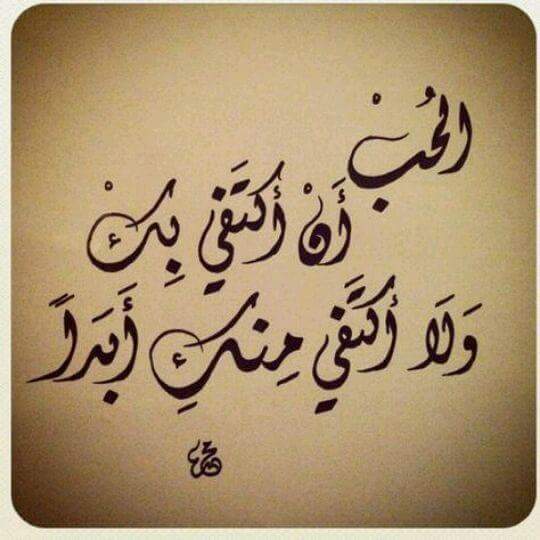 الحُبْ
أَنْ أكتَفي بِكْ
وَلَا أكتَفي مِنكِ أَبَداً